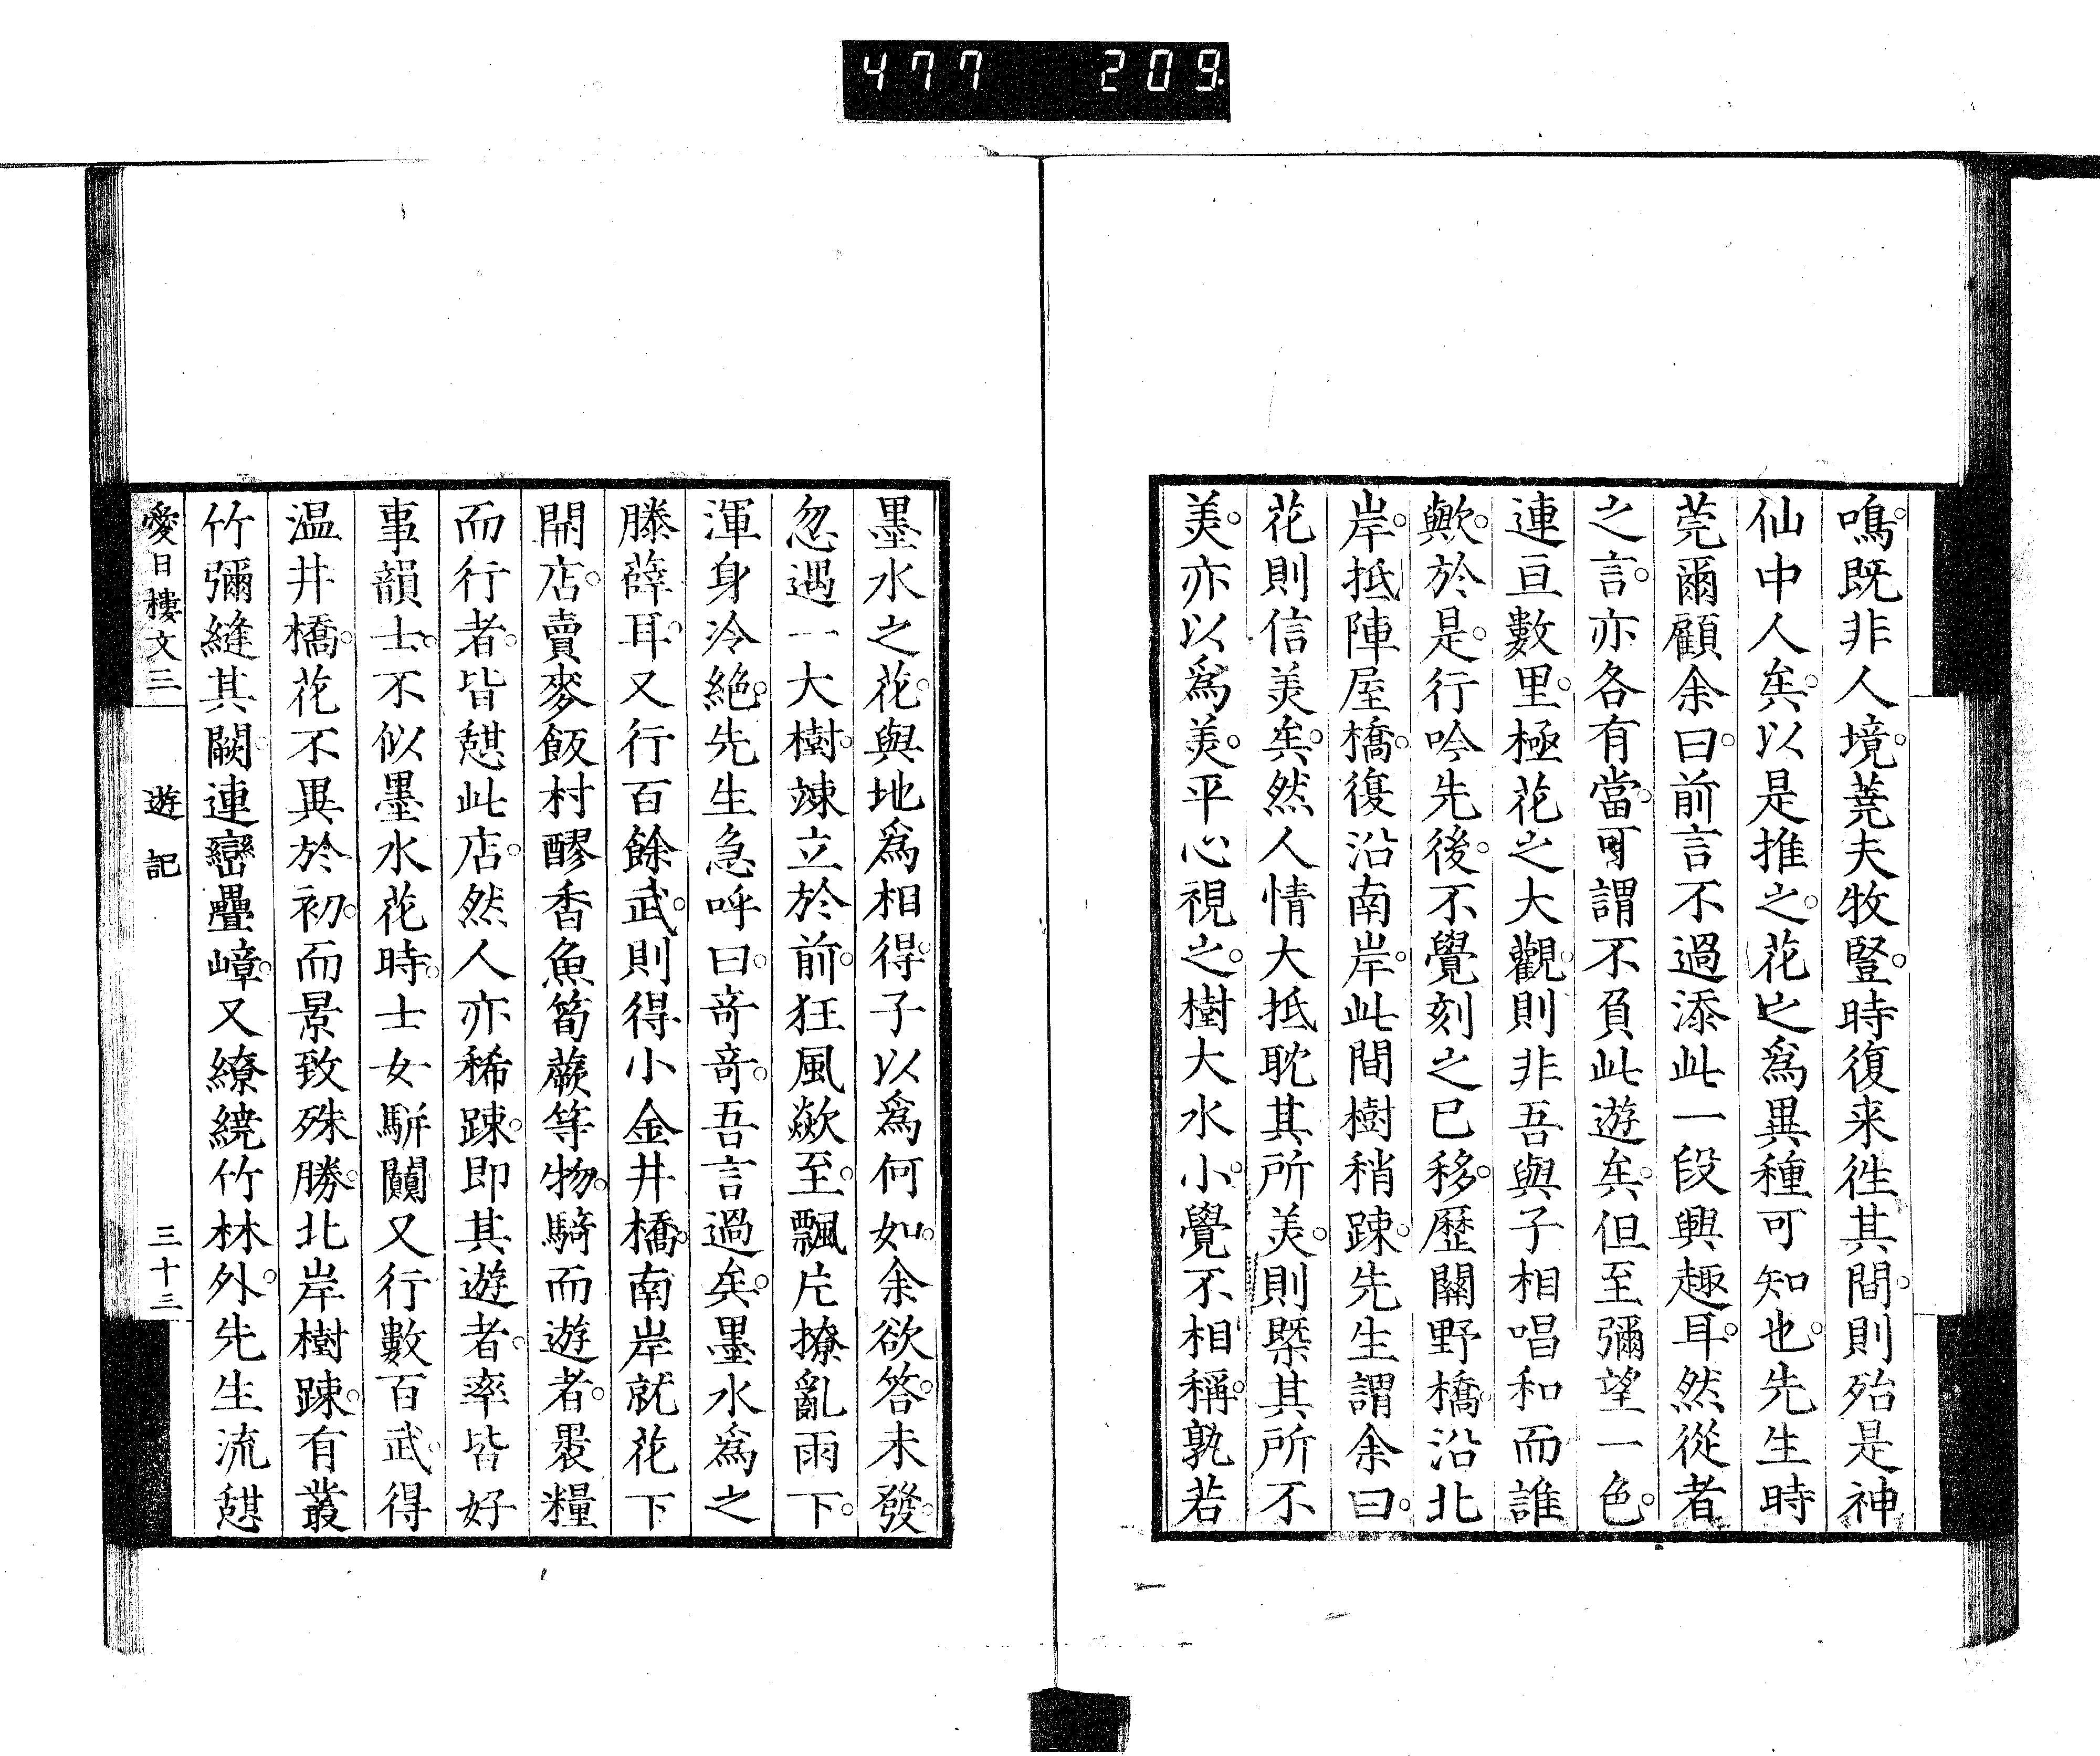 477 209
鳴。既非人境。蕘夫牧豎。時復来徃其間。則殆是神
仙中人矣。以是推之。花之爲異種可知也。先生時
莞爾顧余曰。前言不過添此一段興趣耳。然從者
之言。亦各有當。可謂不負此遊矣。但至彌望一色。
連亘數里。極花之大觀。則非吾與子相唱和而誰
歟。於是。行吟先後。不覺刻之已移。歷關野橋。沿北
岸。抵陣屋橋。復沿南岸。此間樹稍踈。先生謂余曰。
花則信美矣。然人情大抵耽其所美。則槩其所不
美。亦以爲美。平心視之。樹大水小。覺不相稱。孰若
墨水之花。與地爲相得。子以爲何如。余欲答。未發。
忽遇一大樹。竦立於前。狂風歘至。飄片撩亂雨下。
渾身冷絶。先生急呼曰。竒竒。吾言過矣。墨水爲之
滕薛耳。又行百餘武。則得小金井橋。南岸就花下
開店。賣麥飯村醪香魚筍蕨等物。騎而遊者。褁糧
而行者。皆憇此店。然人亦稀踈。即其遊者。率皆好
事韻士。不似墨水花時。士女駢闐。又行數百武。得
温井橋。花不異於初。而景致殊勝。北岸樹踈。有叢
竹彌縫其闕。連巒疊嶂。又繚繞竹林外。先生流憇
愛日樓文三 遊記 三十三